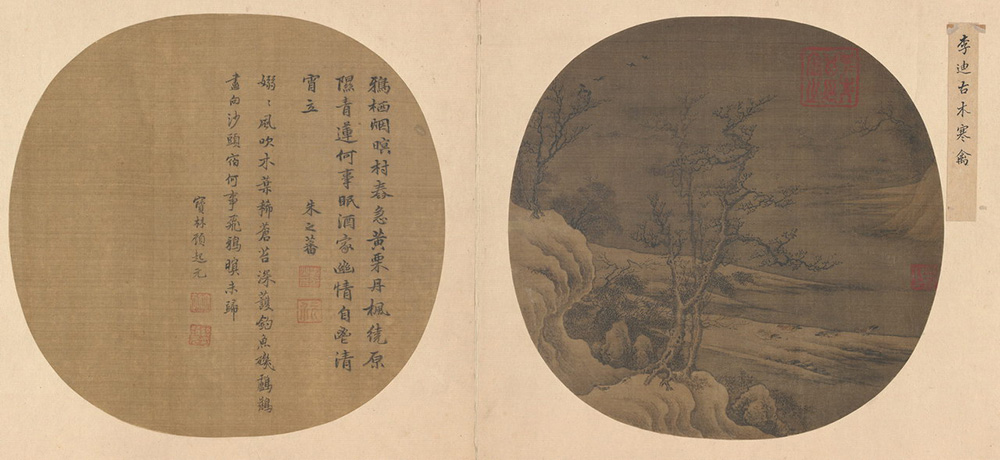 李迪古木寒禽
鴉栖烟暝村舂急黃栗丹楓繞原
隰青蓮何事眠酒家幽情自堅清
宵立
朱之蕃
嫋〻風吹木葉稀蒼苔深護釣魚機鷗鷀
畫向沙頭宿何事飛鴉暝未歸
寶林顧起元